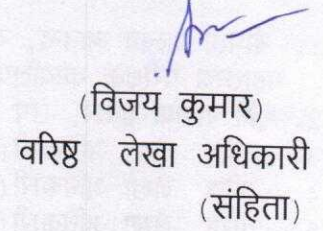 (विजय कुमार)
वरिष्ठ लेखा अधिकारी
(संहिता)